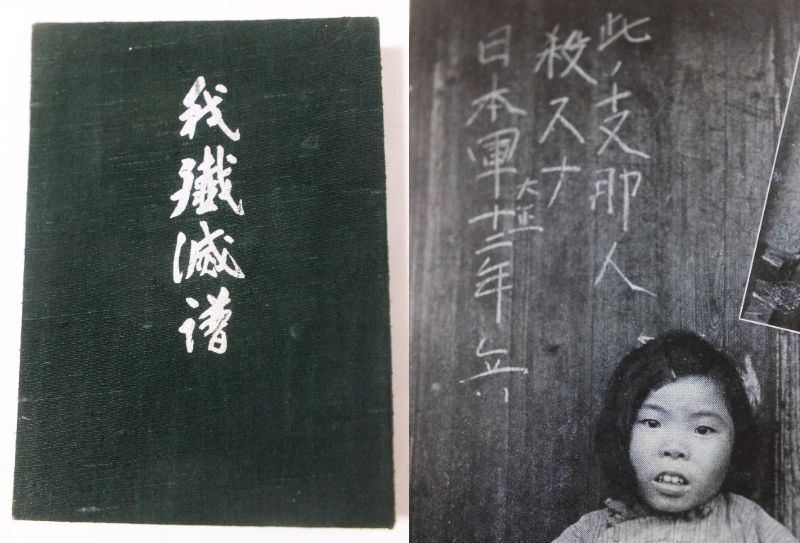 我殲滅譜
此ノ支那人
殺スナ
日本軍大正十二年兵